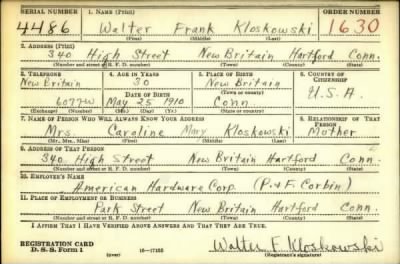 SERIAL NUMBER 1. NAME (Print) ORDER NUMBER
4486 Walter Frank Kloskowski 1630
(First) (Middle) (Last)
2. ADDRESS (Print)
340 High Street New Britain Hartford Conn.
(Number and street or R. F. D. number) (Town) (County) (State)
3. TELEPHONE 4. AGE IN YEARS 5. PLACE OF BIRTH 6. COUNTRY OF CITIZENSHIP
New Britain 30 New Britain
DATE OF BIRTH (Town or county) U.S.A.
6077W May 25 1910 Conn
(Exchange) (Number) (Mo.) (Day) (Yr.) (State or country)
7. NAME OF PERSON WHO WILL ALWAYS KNOW YOUR ADDRESS 8. RELATIONSHIP OF THAT PERSON
Mrs. Caroline Mary Kloskowski Mother
(Mr., Mrs., Miss) (First) (Middle) (Last)
9. ADDRESS OF THAT PERSON
340 High Street New Britain Hartford Conn.
(Number and street or R. F. D. number) (Town) (County) (State)
10. EMPLOYER'S NAME
American Hardware Corp. (P. & F. Corbin)
11. PLACE OF EMPLOYMENT OR BUSINESS
Park Street New Britain Hartford Conn.
(Number and street or R. F. D. number) (Town) (County) (State)
I AFFIRM THAT I HAVE VERIFIED ABOVE ANSWERS AND THAT THEY ARE TRUE.
REGISTRATION CARD
D. S. S. FORM 1 (over) 16—17105 Walter F. Kloskowski
(Registrant's signature)